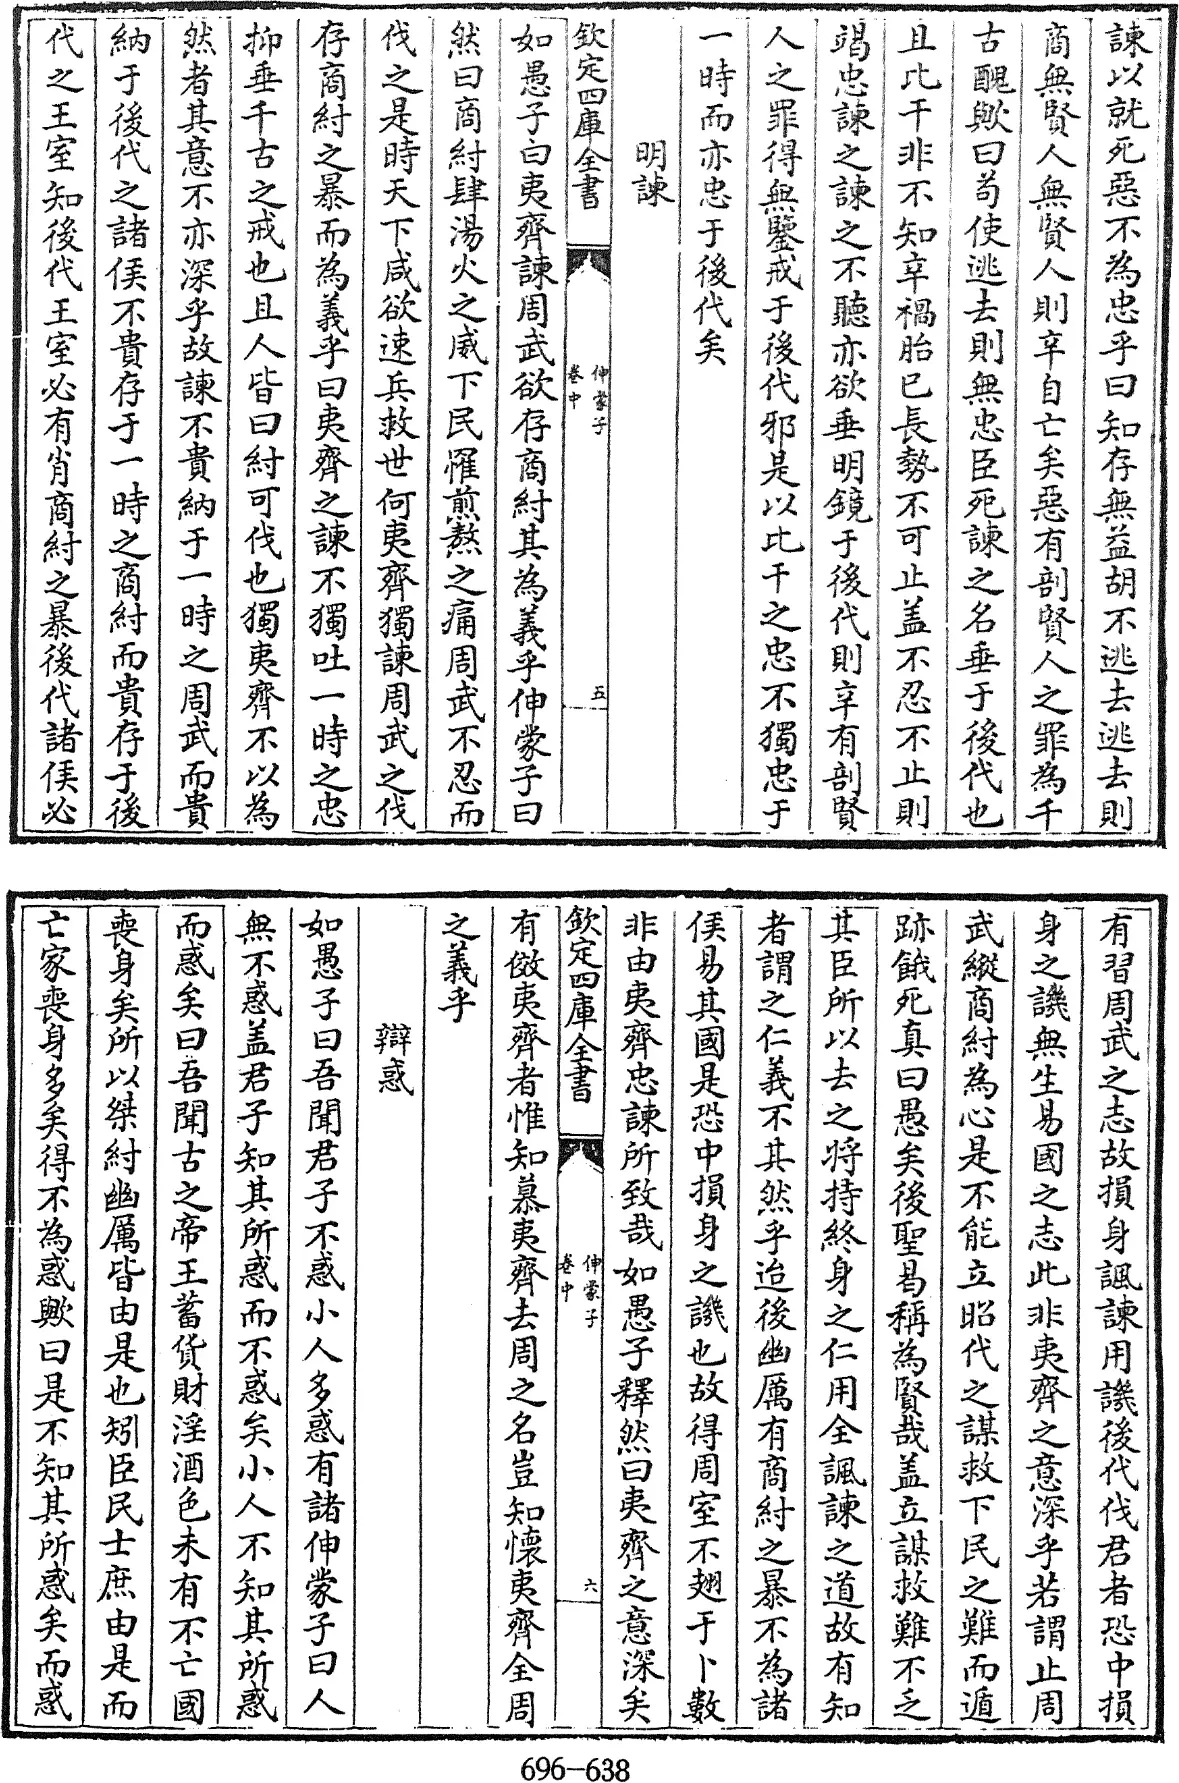 諫以就死惡不為忠乎曰知存無益胡不逃去逃去則
商無賢人無賢人則辛自亡矣惡有剖賢人之罪為千
古醜歟曰苟使逃去則無忠臣死諫之名垂于後代也
且比干非不知辛禍胎已長勢不可止蓋不忍不止則
竭忠諫之諫之不聽亦欲垂明鏡于後代則辛有剖賢
人之罪得無鑒戒于後代邪是以比干之忠不獨忠于
一時而亦忠于後代矣
明諫
欽定四庫全書
伸蒙子
卷中
五
如愚子白夷齊諫周武欲存商紂其為義乎伸蒙子曰
然曰商紂肆湯火之威下民罹煎熬之痛周武不忍而
伐之是時天下咸欲速兵救世何夷齊獨諫周武之伐
存商紂之暴而為義乎曰夷齊之諫不獨吐一時之忠
抑垂千古之戒也且人皆曰紂可伐也獨夷齊不以為
然者其意不亦深乎故諫不貴納于一時之周武而貴
納于後代之諸侯不貴存于一時之商紂而貴存于後
代之王室知後代王室必有肖商紂之暴後代諸侯必
有習周武之志故損身諷諫用譏後代伐君者恐中損
身之譏無生易國之志此非夷齊之意深乎若謂止周
武縱商紂為心是不能立昭代之謀救下民之難而遁
跡餓死真曰愚矣後聖曷稱為賢哉蓋立謀救難不乏
其臣所以去之將持終身之仁用全諷諫之道故有知
者謂之仁義不其然乎迨後幽厲有商紂之暴不為諸
侯易其國是恐中損身之譏也故得周室不翅于卜數
非由夷齊忠諫所致哉如愚子釋然曰夷齊之意深矣
欽定四庫全書
伸蒙子
卷中
六
有傚夷齊者惟知慕夷齊去周之名豈知懷夷齊全周
之義乎
辯惑
如愚子曰吾聞君子不惑小人多惑有諸伸蒙子曰人
無不惑蓋君子知其所惑而不惑矣小人不知其所惑
而惑矣曰吾聞古之帝王蓄貨財淫酒色未有不亡國
喪身矣所以桀紂幽厲皆由是也矧臣民士庶由是而
亡家喪身多矣得不為惑歟曰是不知其所惑矣而惑
696-638